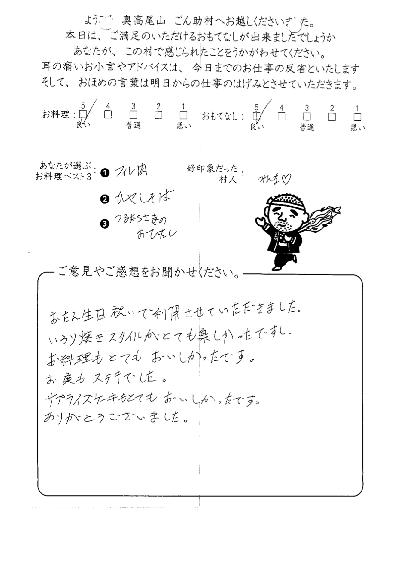 ようこそ 奥高尾山 ごん助村へお越しくださいました。
本日は、ご満足のいただけるおもてなしが出来ましたでしょうか
あなたが、この村で感じられたことをうかがわせてください。
耳の痛いお小言やアドバイスは、今日までのお仕事の反省といたします
そして、おほめの言葉は明日からの仕事のはげみとさせていただきます。
お料理: 5 4 3 2 1 おもてなし: 5 4 3 2 1
良い 普通 悪い 良い 普通 悪い
あなたが選ぶ、
お料理ベスト3 ❶ 好印象だった、
村人
❷ ひやしそば
❸ つるむらさきの
おひたし
ご意見やご感想をお聞かせください。
おたん生日祝いで利用させていただきました。
いろり焼きスタイルがとても楽しかったですし、
お料理もとてもおいしかったです。
お庭もステキでした。
サプライズケーキもとてもおいしかったです。
ありがとうございました。